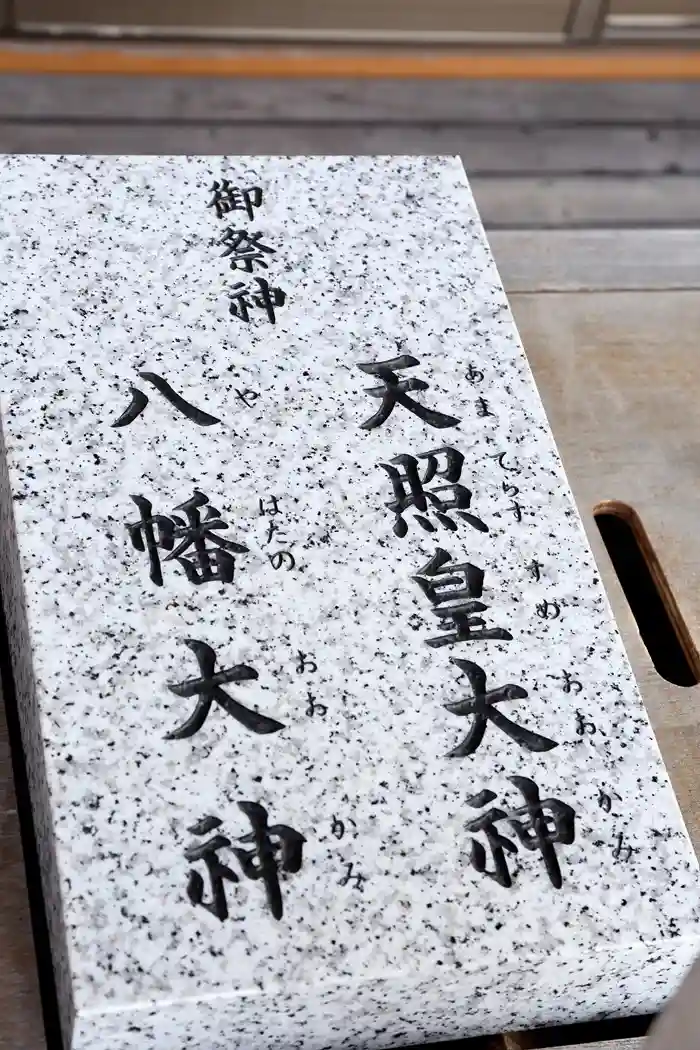 御祭神
天照皇大神
あま てらす すめ おお かみ
八幡大神
や はたの おお かみ